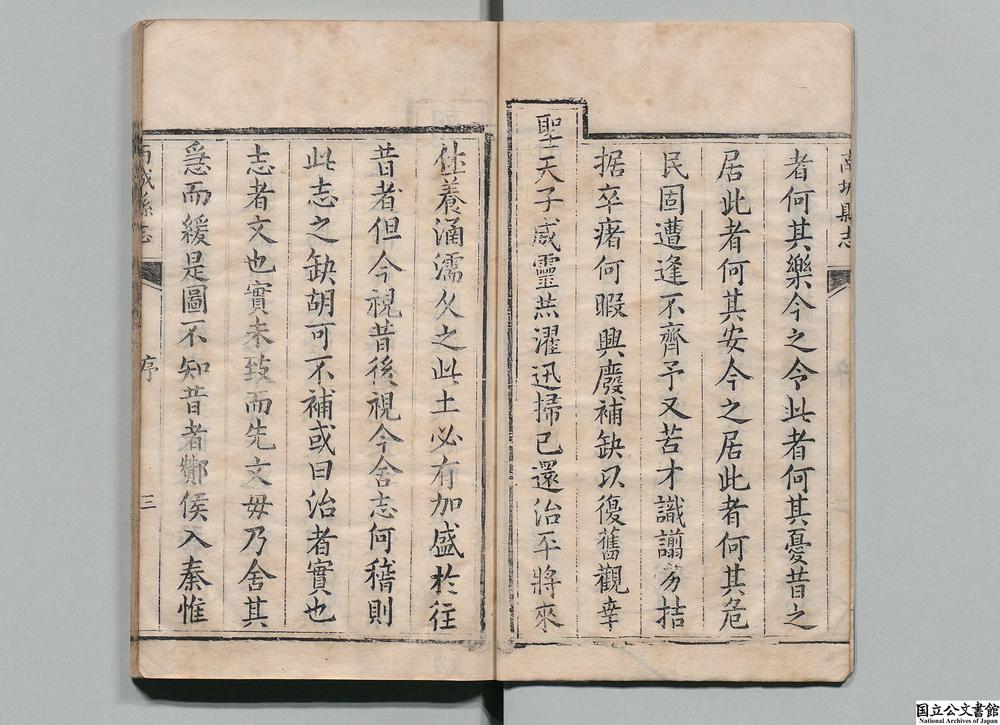 者何其樂今之令此者何其憂昔之
居此者何其安今之居此者何其危
民固遭逢不齊予又苦才識譾劣拮
据卒瘏何暇興廢補缺以復舊觀幸
聖天子威靈燕濯迅掃已還治平將來
休養涵濡久之此土必有加盛於往
昔者但今視昔後視今舍志何稽則
此志之缺胡可不補或曰治者實也
志者文也實未致而先文毋乃舍其
急而緩是圖不知昔者酇侯入秦惟
縣志
城縣志
序
三
国立公文書館
National Archives of Japan